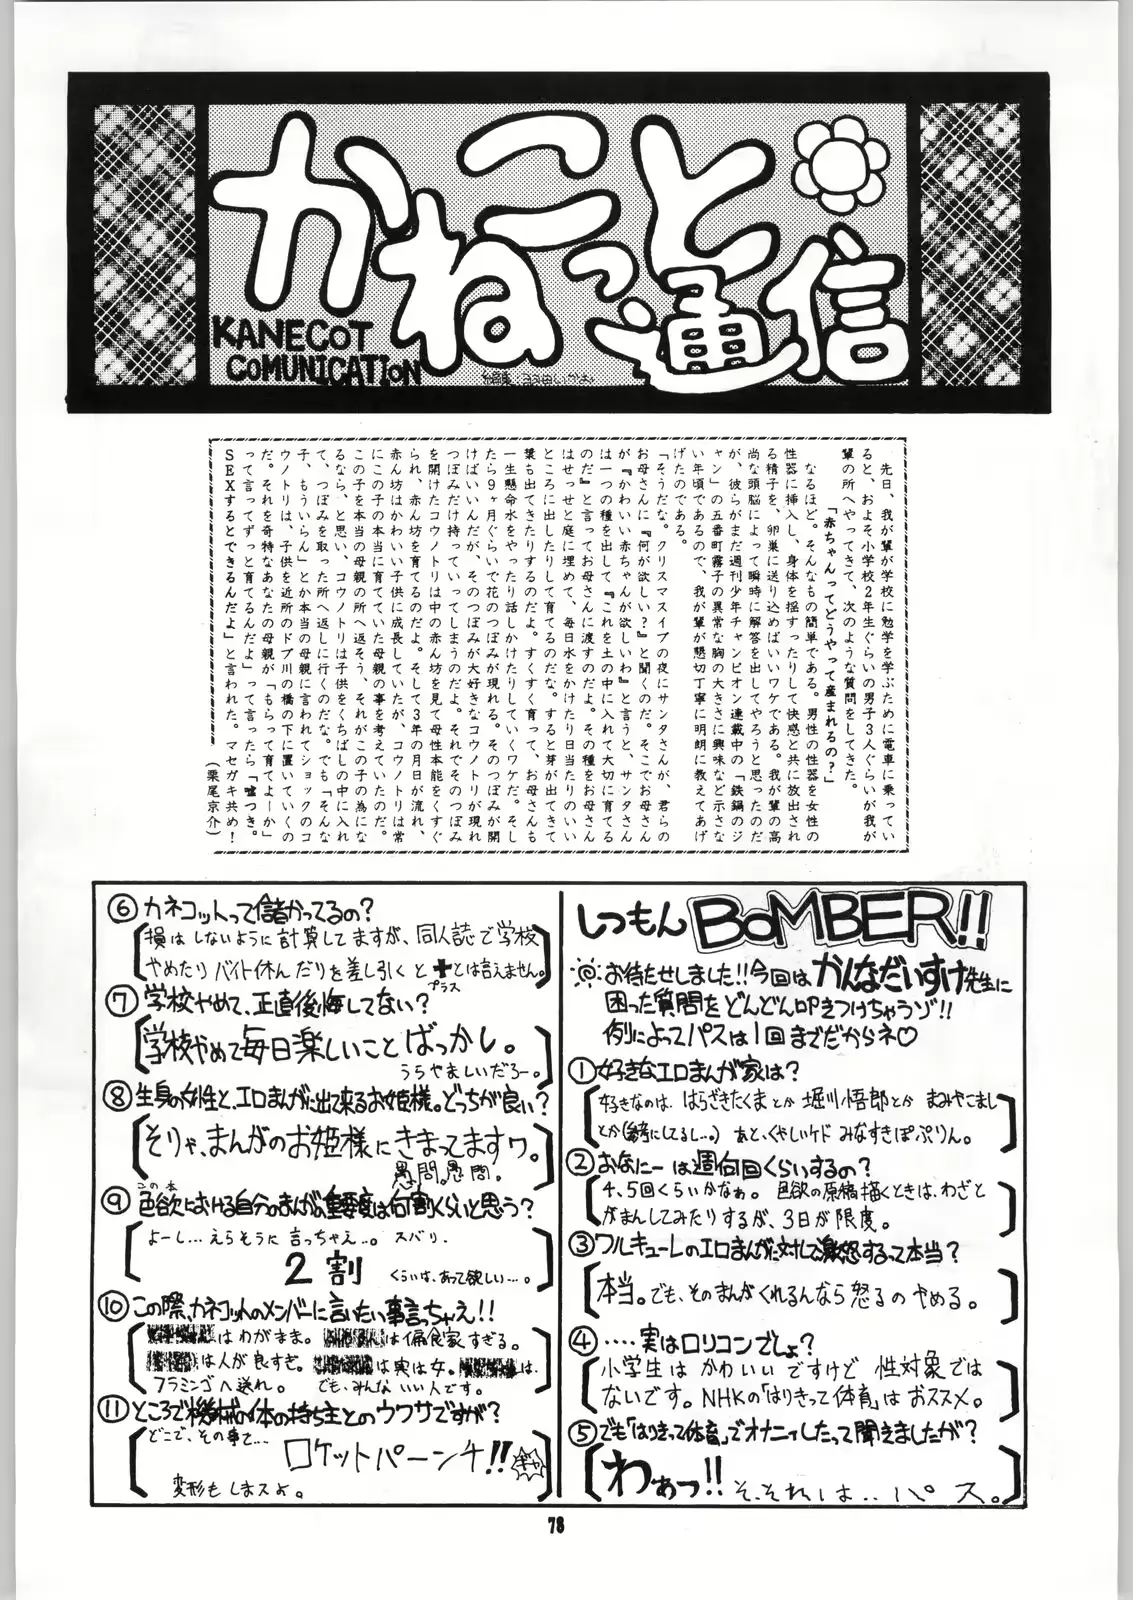 かねこっと通信
KANECOT
COMUNICATION
先日、我が輩が学校に勉学を学ぶために電車に乗ってい
ると、およそ小学校2年生ぐらいの男子3人ぐらいが我が
輩の所へやってきて、次のような質問をしてきた。
「赤ちゃんってどうやって産まれるの?」
なるほど。そんなもの簡単である。男性の性器を女性の
性器に挿入し、身体を揺すったりして快感と共に放出され
る精子を、卵巣に送り込めばいいワケである。我が輩の高
尚な頭脳によって瞬時に解答を出してやろうと思ったのだ
が、彼らがまだ週刊少年チャンピオン連載中の「鉄鍋のジ
ャン」の五番町霧子の異常な胸の大きさに興味など示さな
い年頃であるので、我が輩が懇切丁寧に明朗に教えてあげ
げたのである。
「そうだな。クリスマスイブの夜にサンタさんが、君らの
お母さんに『何が欲しい?』と聞くのだ。そこでお母さん
が『かわいい赤ちゃんが欲しいわ』と言うと、サンタさん
は一つの種を出して、『これを土の中に入れて大切に育てる
のだ』と言ってお母さんに渡すのだよ。その種をお母さん
はせっせと庭に埋めて、毎日水をかけたり日当たりのいい
ところに出したりして育てるのだな。すると芽が出てきて
葉も出てきたりするのだよ。すくすく育って、お母さんも
一生懸命水をやったり話しかけたりしていくワケだ。そし
たら9ヶ月ぐらいで花のつぼみが現れる。そのつぼみが開
けばいいんだが、そのつぼみが大好きなコウノトリが現れ
つぼみだけ持っていってしまうのだよ。それでそのつぼみ
を開けたコウノトリは中の赤ん坊を見て母性本能をくすぐ
られ、赤ん坊を育てるのだよ。そして3年の月日が流れ、
赤ん坊はかわいい子供に成長していたが、コウノトリは常
にこの子の本当に育てていた母親の事を考えていたのだ。
この子を本当の母親の所へ返そう、それがこの子の為にな
るなら、と思い、コウノトリは子供をくちばしの中に入れ
て、つぼみを取った所へ返しに行くのだな。でも「そんな
子、もういらん」とか本当の母親に言われてショックのコ
ウノトリは、子供を近所のドブ川の橋の下に置いていくの
だ。それを奇特なあなたの母親が「もらって育てよーか」
って言ってずっと育てるんだよ」って言ったら「嘘つき。
SEXするとできるんだよ」と言われた。マセガキ共め!
(栗尾京介)
しつもんBOMBER!!
お待たせしました!!今回はかんなだいすけ先生に
困った質問をどんどん叩きつけちゃうゾ!!
例によってパスは1回までだからネ♡
①好きなエロまんが家は?
好きなのは、はらざきたくまとか堀川悟郎とか まみやこまし
とか(参考にしてるし…。) あと、くやしいケド みなすきぽぷりん。
②おなにーは週何回くらいするの?
4、5回くらいかなぁ。 色欲の原稿描くときは、わざと
がまんしてみたりするが、3日が限度。
③ワルキューレのエロまんがに対して激怒するって本当?
本当。でも、そのまんがくれるんなら怒るのやめる。
④……実はロリコンでしょ?
小学生は かわいいですけど 性対象では
ないです。NHKの「はりきって体育」はおススメ。
⑤でも「はりきって体育」でオナニィしたって聞えましたが?
わぁっ!! そ、それは‥パス。
⑥カネコットって儲かってるの?
損はしないように計算してますが、同人誌で学校
やめたりバイト休んだりを差し引くと+とは言えません。
プラス
⑦学校やめて、正直後悔してない?
学校やめて毎日楽しいことばっかし。
うらやましいだろー。
⑧生身の女性と、エロまんがに出て来るお姫様。どっちが良い?
そりゃ、まんがのお姫様にきまってますワ。
愚問。愚問。
この本
⑨色欲における自分のまんがの重要度は何割くらいと思う?
よーし…えらそうに言っちゃえ…。ズバリ.
2割 くらいは、あって欲しい…。
⑩この際、カネコットのメンバーに言いたい事言っちゃえ!!
はわがまま。 は偏食家すぎる。
は人が良すぎ。 は実は女。 は、
フラミンゴへ送れ。 でも、みんないい人です。
⑪ところで機械の体の持ち主とのウワサですが?
どこで、その事を…
ロケットパーンチ!! ギャ
変形もしまスよ。
78